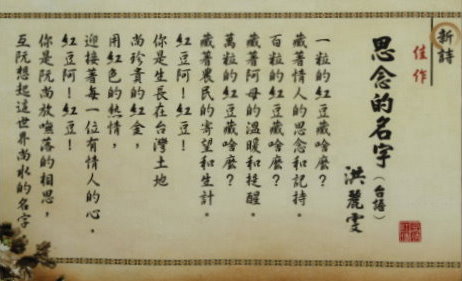 新詩
佳作
思念的名字(台語)
洪麗雯
一粒的紅豆藏啥麼？
藏著情人的思念和記持。
百粒的紅豆藏啥麼？
藏著阿母的溫暖和提醒。
萬粒的紅豆藏啥麼？
藏著農民的寄望和生計。
紅豆阿！紅豆！
你是生長在台灣土地
尚珍貴的紅金，
用紅色的熱情，
迎接著每一位有情人的心，
紅豆阿！紅豆！
你是阮尚放嘸落的相思，
互阮想起這世界尚水的名字